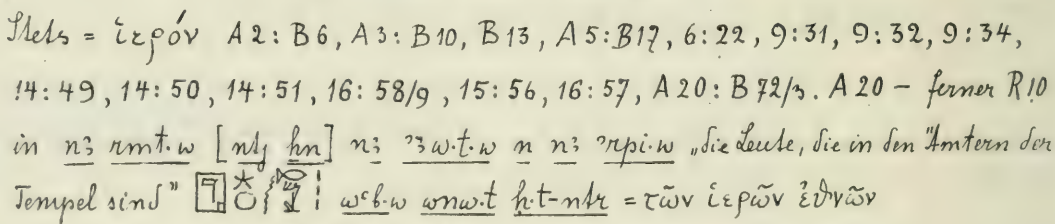 Stets = ἱερόν A 2 : B 6, A 3 : B 10, B 13, A 5 : B 17, 6 : 22, 9 : 31, 9 : 32, 9 : 34,
14 : 49, 14 : 50, 14 : 51, 16 : 58/9, 15 : 56, 16 : 57, A 20 : B 72/3. A 20 – ferner R 10
in nꜣ rmt.w [ntj ḥn] nꜣ ꜣw.t.w n nꜣ ꜥrpi.w „die Leute, die in den Ämtern der
Tempel sind" wꜥb.w wnw.t ḥ.t-nṯr = τῶν ἱερῶν ἐθνῶν